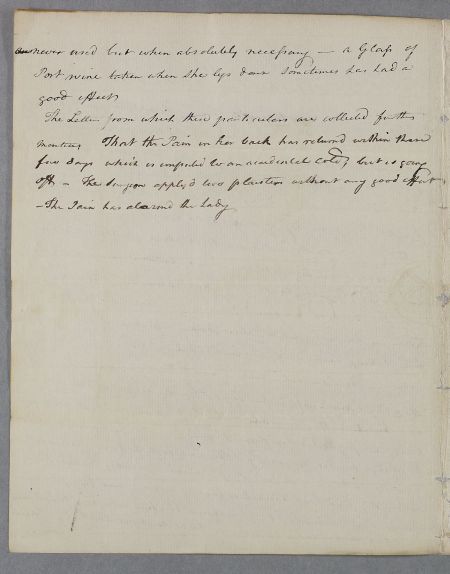 are never used but when absolutely necessary — a Glass of
Port wine taken when she lys down sometimes has had a
good effect
The Letter from which these particulars are collected further
mentions That the Pain in her back has returned within these
few days which is imputed to an accidental Cold, but is going
off — The Surgeon apply'd two plaisters without any good effect
— The Pain has alarmd the Lady